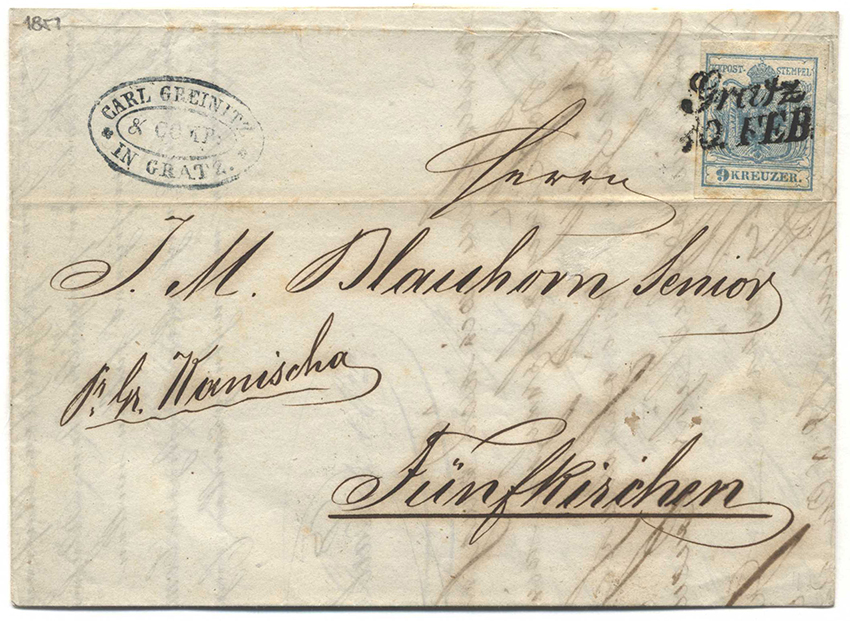 1851
CARL GREINITZ
& COMP.
IN GRATZ.
KKPOST-STEMPEL
Gratz
10. FEB.
9 KREUZER.
Herrn
J. M. Blauhorn Senior
pr Gr. Kanischa
Fünfkirchen